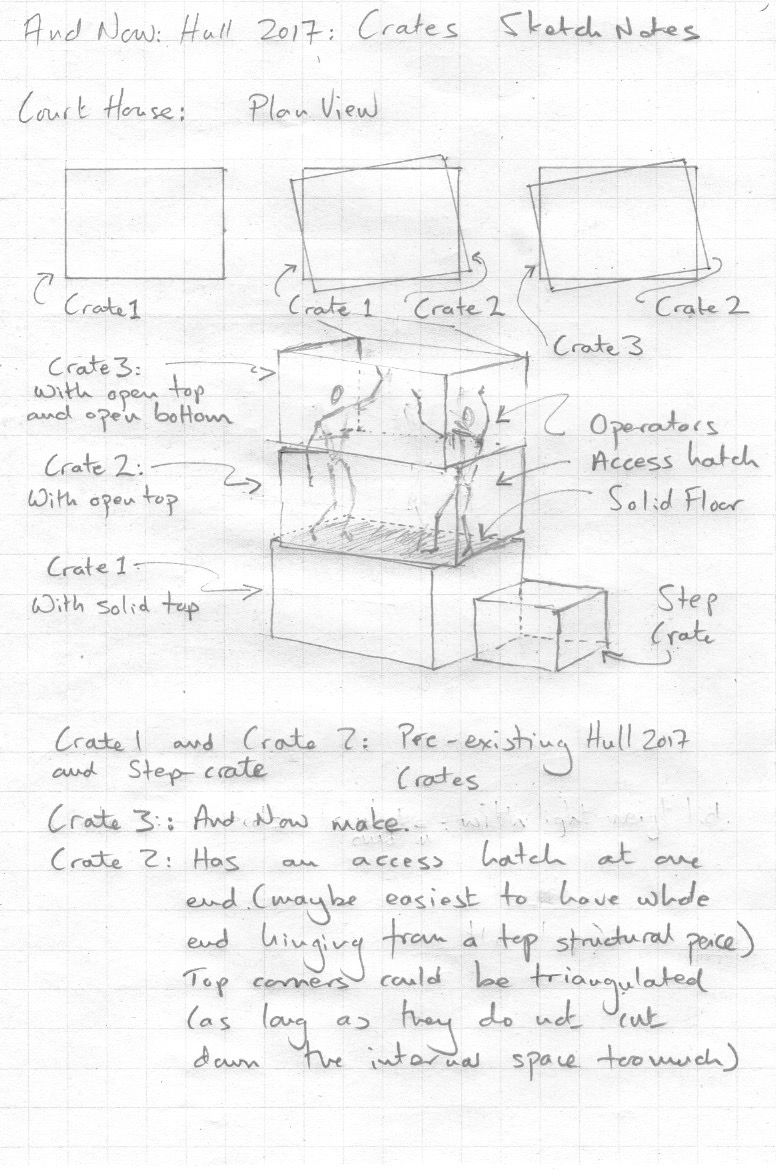 And Now: Hull 2017: Crates Sketch Notes
Court House: Plan View
Crate 1
Crate 1
Crate 2
Crate 2
Crate 3
Crate 3:
with open top
and open bottom
Crate 2:
With open top
Crate 1
With solid top
Operators
Access hatch
Solid Floor
Step
Crate
Crate 1 and Crate 2: Pre-existing Hull 2017
and Step crate Crates
Crate 3: And Now make.
Crate 2: Has an access hatch at one
end (maybe easiest to have whole
end hinging from a top structural peice)
Top corners could be triangulated
(as long as they do not cut
down the internal space too much)